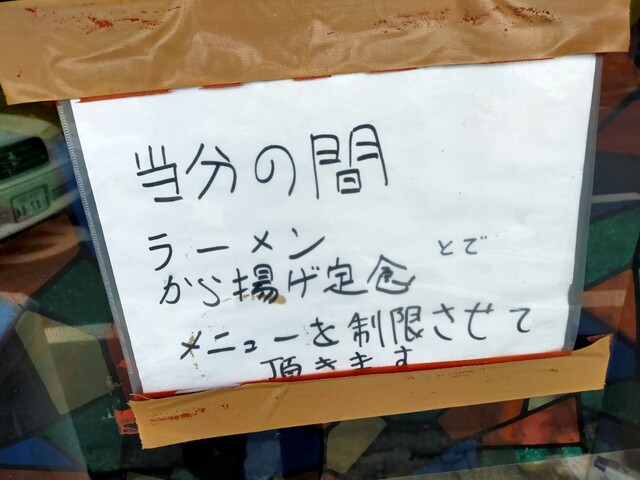 当分の間
ラーメン
から揚げ定食 とで
メニューを制限させて
頂きます